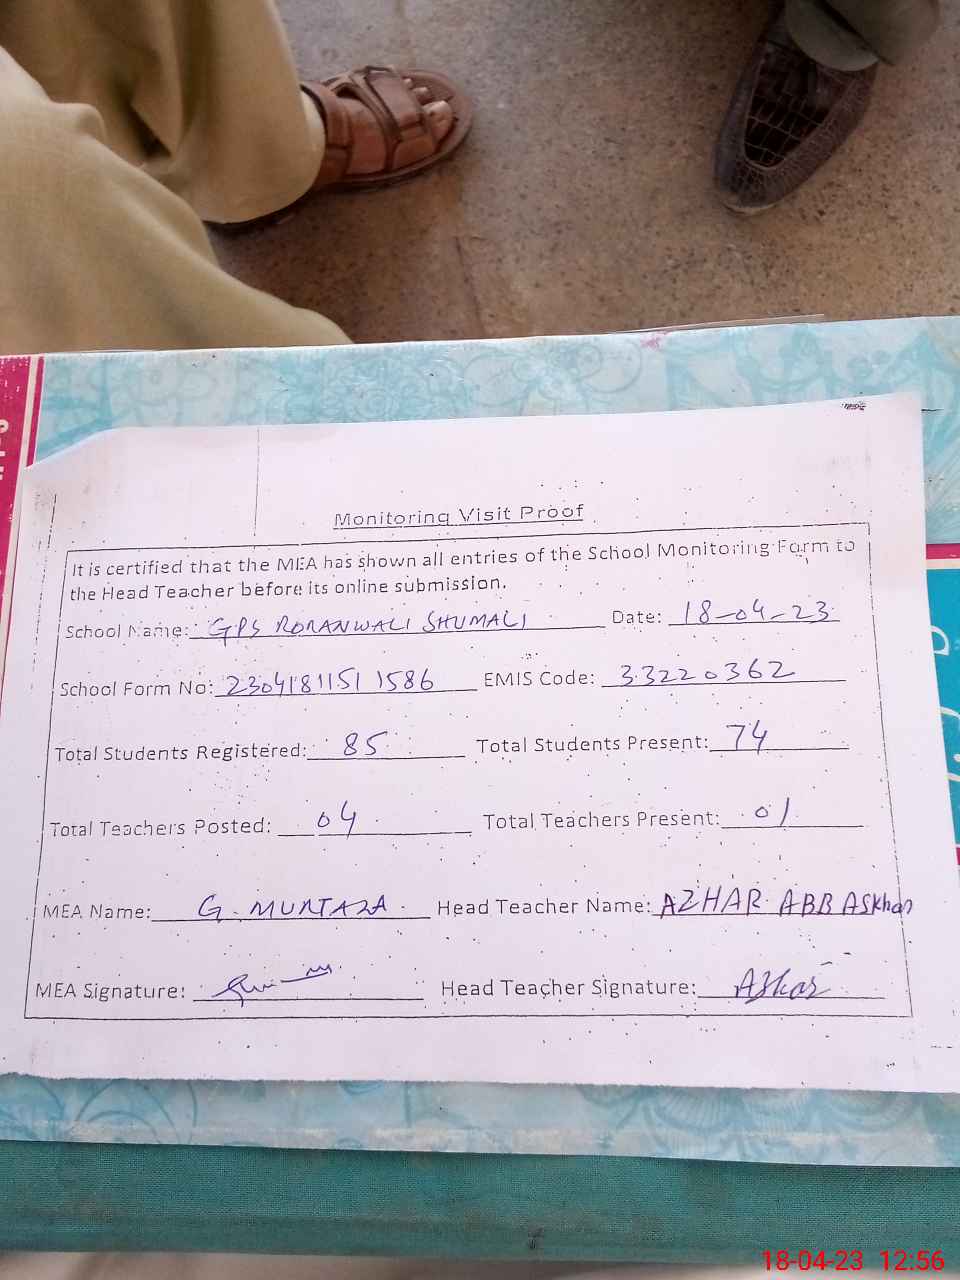 Monitoring Visit Proof
It is certified that the MEA has shown all entries of the School Monitoring Form to
the Head Teacher before its online submission.
School Name: GPS RORANWALI SHUMALI Date: 18-04-23
School Form No: 2304181151 1586 EMIS Code: 33220362
Total Students Registered: 85 Total Students Present: 74
Total Teachers Posted: 04 Total Teachers Present: 01
MEA Name: G. MURTAZA Head Teacher Name: AZHAR ABBAS Khan
MEA Signature: Head Teacher Signature: Azhar
18-04-23 12:56